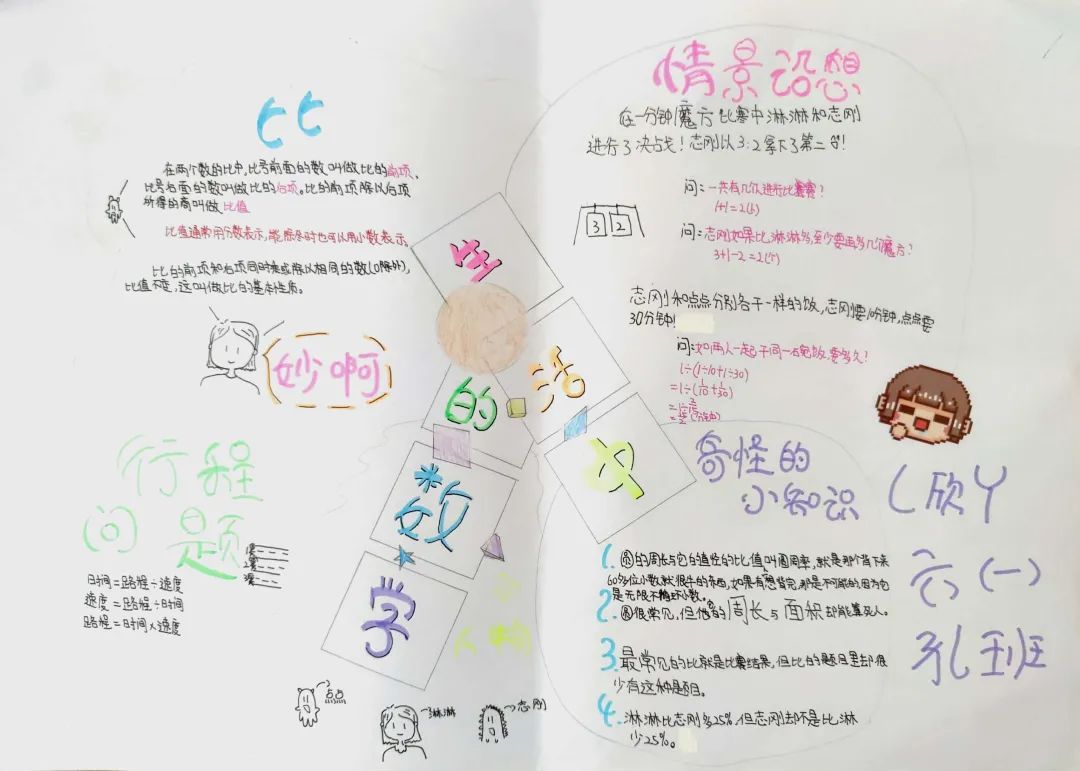 比
在两个数的比中,比号前面的数叫做比的前项、
比号后面的数叫做比的后项。比的前项除以后项
所得的商叫做比值
比值通常用分数表示,能除尽时也可以用小数表示。
比的前项和后项同时乘或除以相同的数(0除外),
比值不变,这叫做比的基本性质。
妙啊
行程
问题
时间=路程÷速度
速度=路程÷时间
路程=时间×速度
生
活
中
的
数
学
人物
点点
淋淋
志刚
情景设想
在一分钟魔方比赛中淋淋和志刚
进行了决战!志刚以3:2拿下了第二名!
3 2
问:一共有几个队进行比赛?
1+1=2(队)
问:志刚如果比淋淋多,至少要再多几个魔方?
3+1-2=2(个)
志刚和点点分别各干一样的饭,志刚要10分钟,点点要
30分钟!
问:如两人一起干同一碗饭,要多久!
1÷(1÷10+1÷30)
=1÷(1/10+1/30)
奇怪的
小知识
1. 圆的周长与它的直径的比值叫圆周率,就是那个背下来
60多位小数就很牛的东西,如果有想背完,那是不可能的,因为它
是无限不循环小数。
2. 圆很常见,但他的周长与面积却能算死人。
3. 最常见的比就是比赛结果,但比的题目里却很
少有这种题目。
4. 淋淋比志刚多25%,但志刚却不是比淋
少25%。
六(一)
孔 班